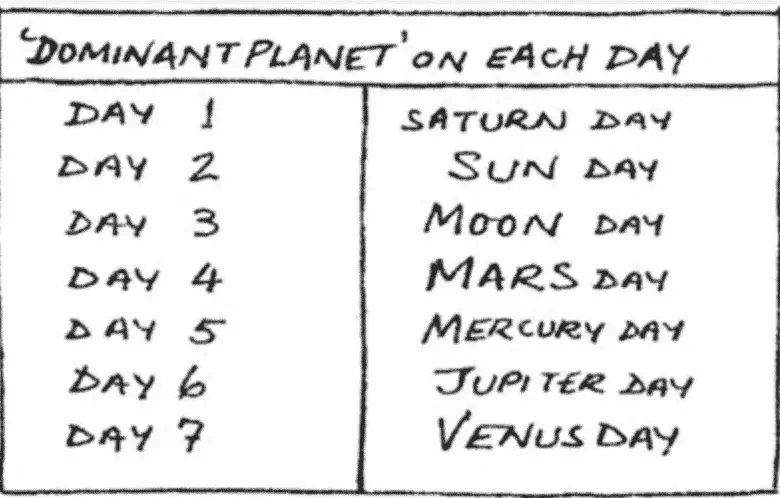 'DOMINANT PLANET' ON EACH DAY
DAY 1 SATURN DAY
DAY 2 SUN DAY
DAY 3 MOON DAY
DAY 4 MARS DAY
DAY 5 MERCURY DAY
DAY 6 JUPITER DAY
DAY 7 VENUS DAY